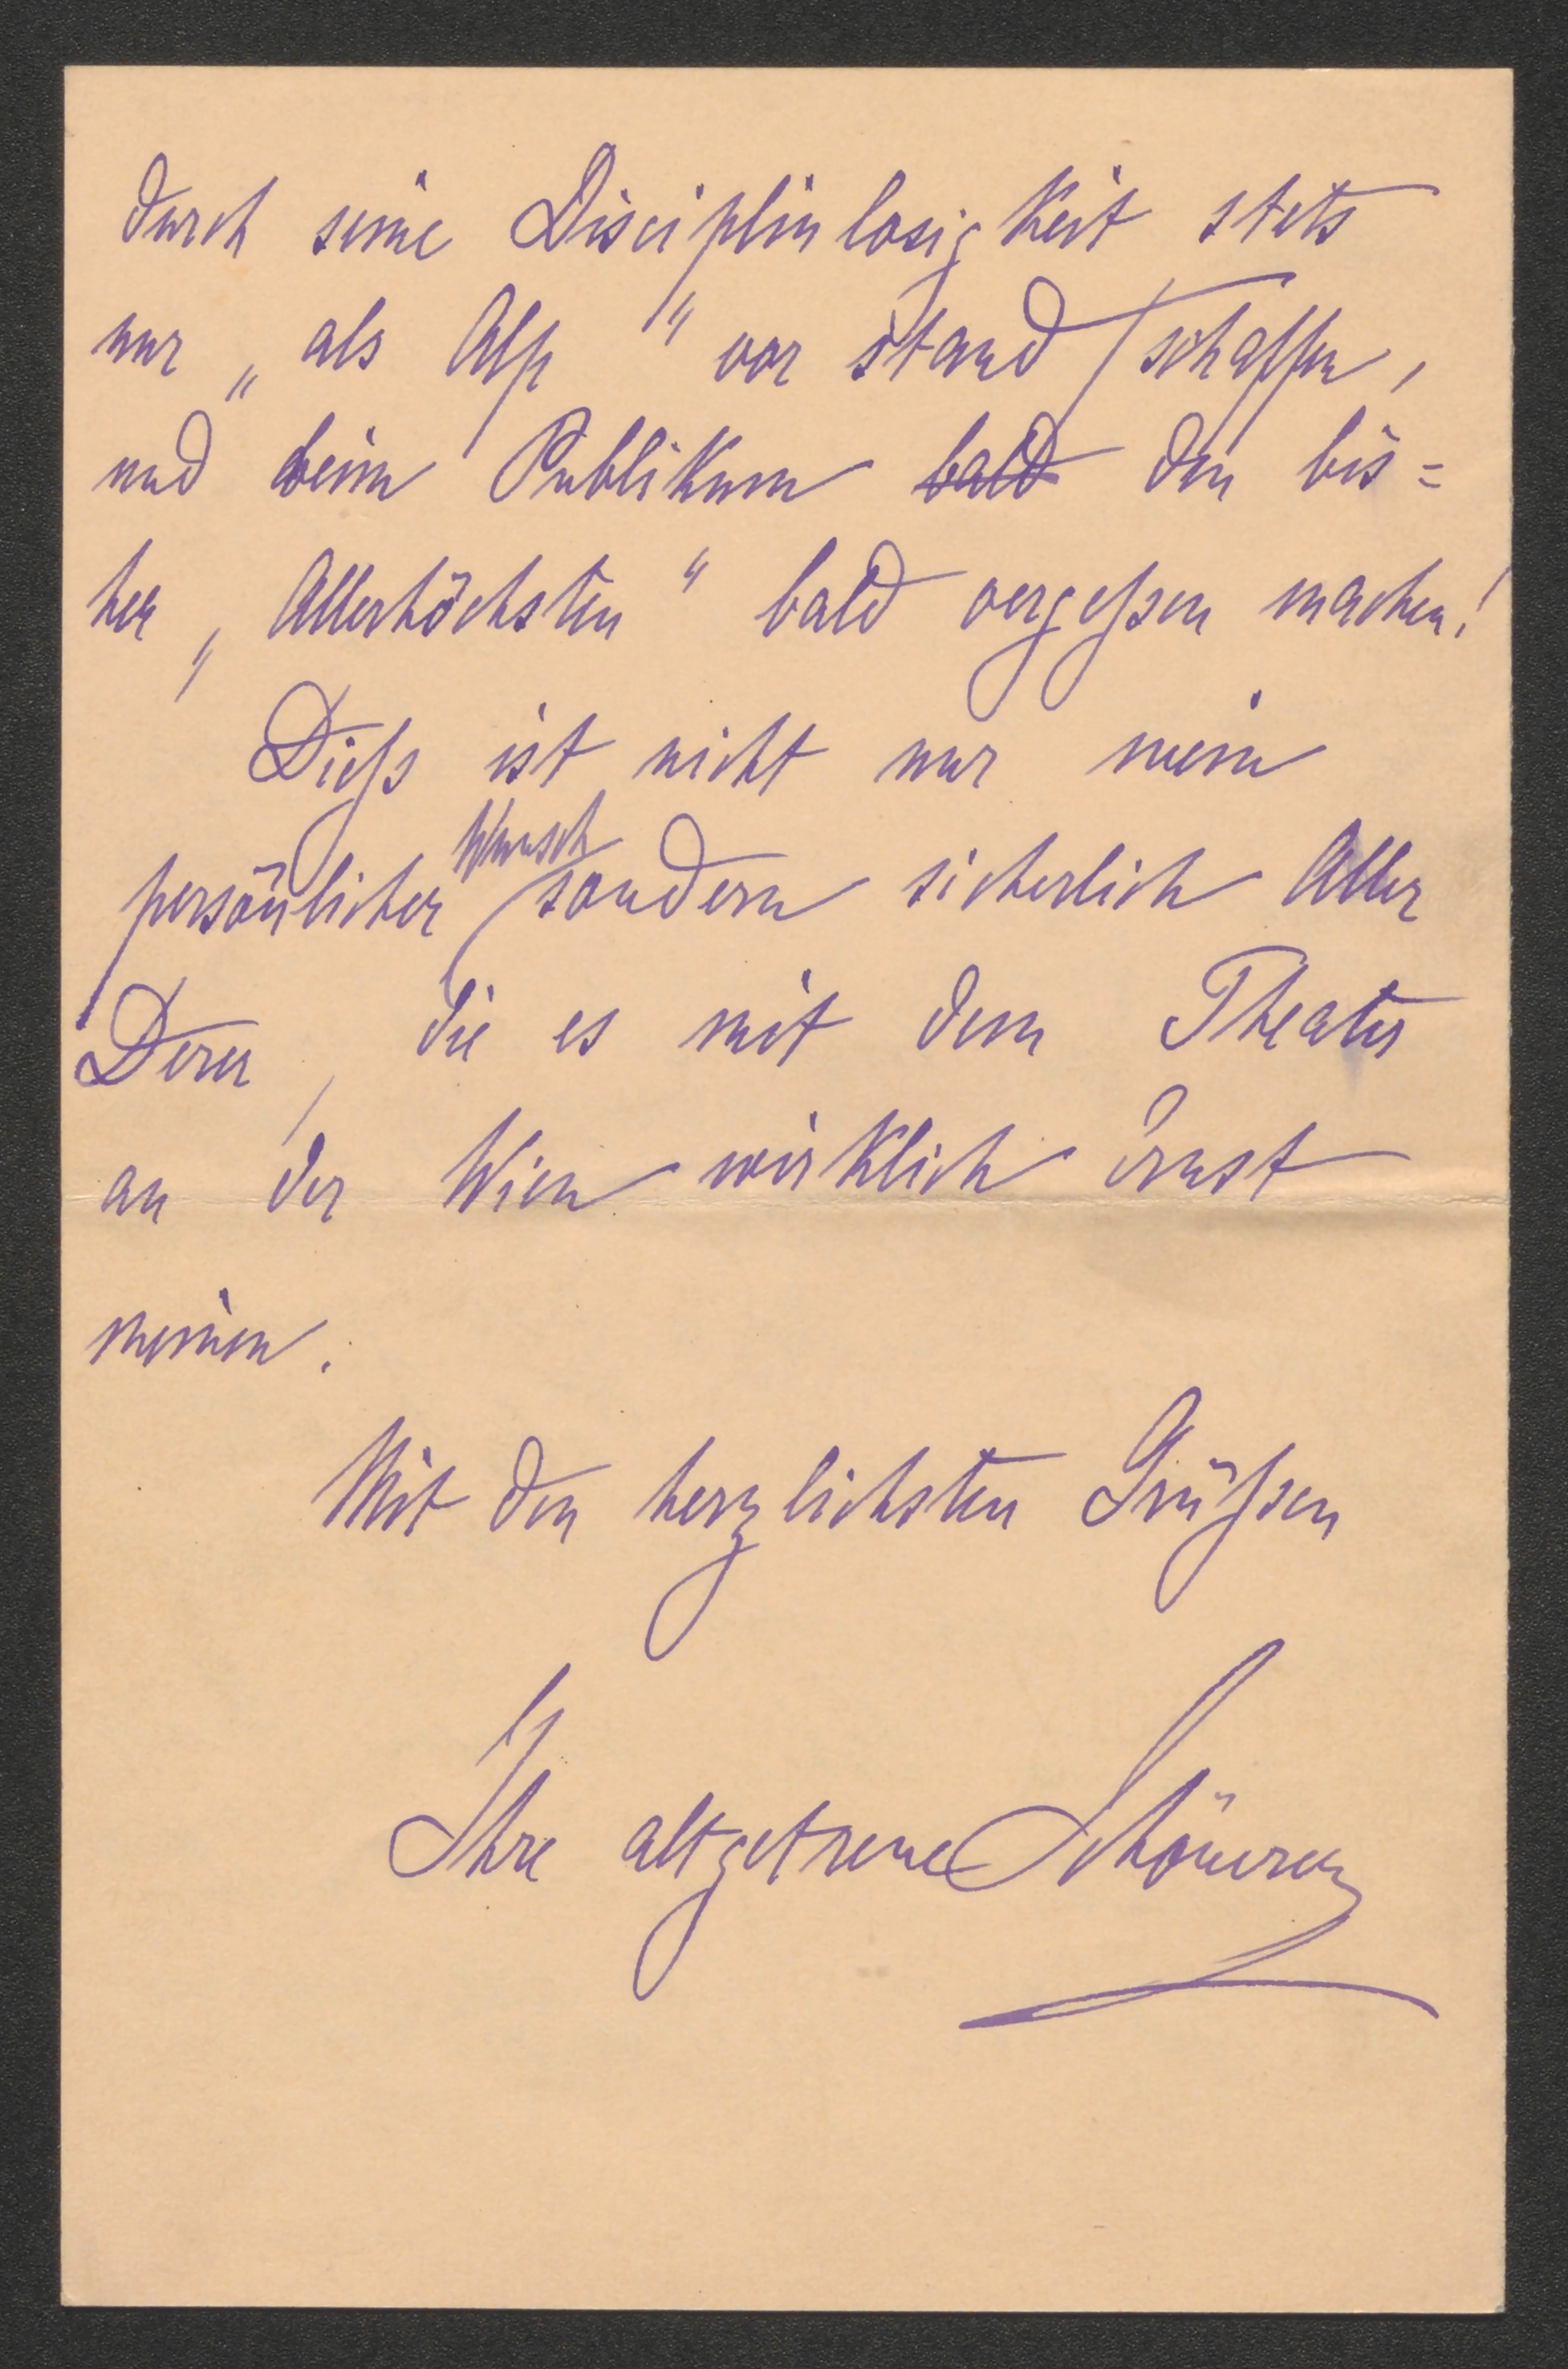 durch seine Disciplinlosigkeit stets
nur „als Alp" vorstand schaffen,
und beim Publikum bald den bis=
her „Allerhöchsten" bald vergeßen machen!
Dieß ist nicht nur mein
persönlicher Wunsch sondern sicherlich Aller
Derer, die es mit dem Theater
an der Wien wirklich ernst
meinen.
Mit den herzlichsten Grüßen
Ihre altgetreue Schönerer